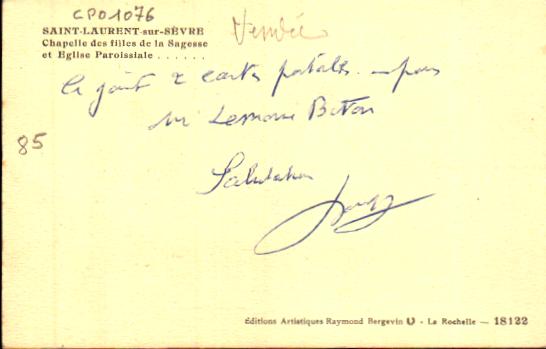 CP01076
SAINT-LAURENT-sur-SÈVRE
Chapelle des filles de la Sagesse
et Eglise Paroissiale ......
Vendée
Ci joint 2 cartes postales
85
Mr
Salutations
Éditions Artistiques Raymond Bergevin - La Rochelle — 18122